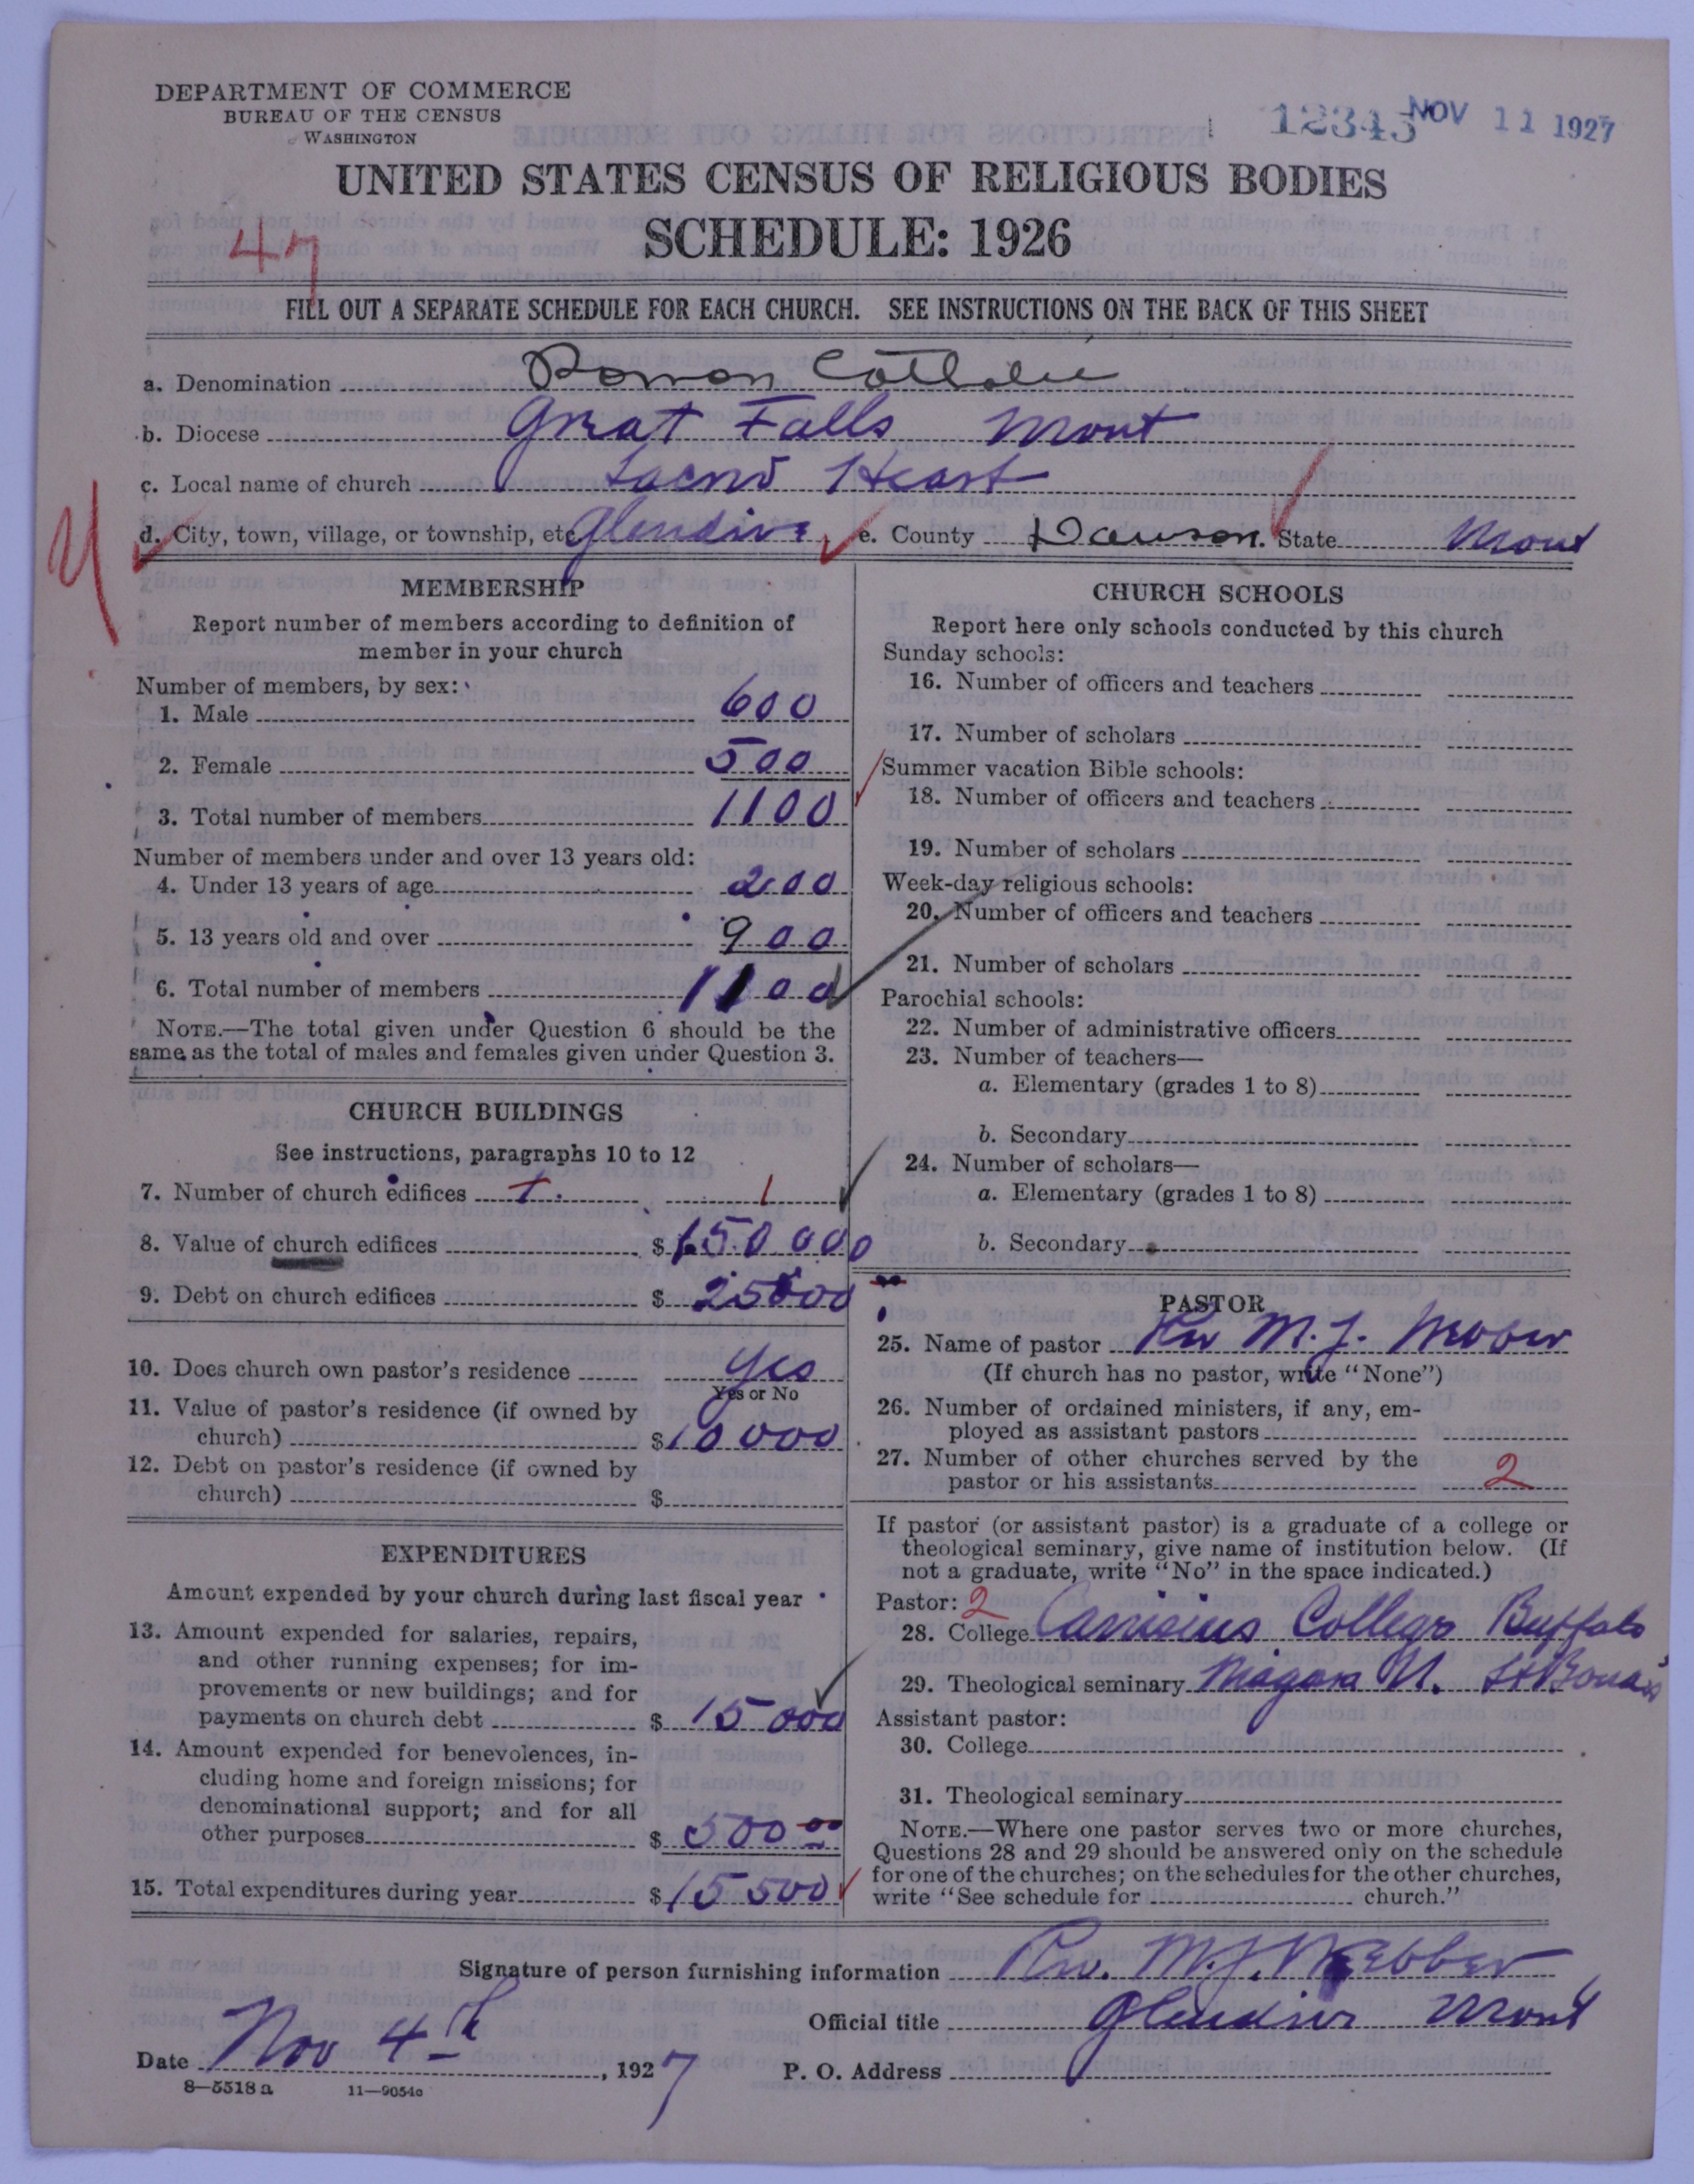 DEPARTMENT OF COMMERCE
BUREAU OF THE CENSUS
WASHINGTON
12345 NOV 11 1927
UNITED STATES CENSUS OF RELIGIOUS BODIES
SCHEDULE: 1926
47
FILL OUT A SEPARATE SCHEDULE FOR EACH CHURCH. SEE INSTRUCTIONS ON THE BACK OF THIS SHEET
a. Denomination Roman Catholic
b. Diocese Great Falls Mont
c. Local name of church Sacred Heart
d. City, town, village, or township, etc. Glendive e. County Dawson. State Mont
MEMBERSHIP
Report number of members according to definition of
member in your church
Number of members, by sex:
1. Male 600
2. Female 500
3. Total number of members 1100
Number of members under and over 13 years old:
4. Under 13 years of age 200
5. 13 years old and over 900
6. Total number of members 1100
NOTE.—The total given under Question 6 should be the
same as the total of males and females given under Question 3.
CHURCH BUILDINGS
See instructions, paragraphs 10 to 12
7. Number of church edifices 1. 1
8. Value of church edifices $150000
9. Debt on church edifices $25000
10. Does church own pastor's residence Yes
Yes or No
11. Value of pastor's residence (if owned by
church) $10000
12. Debt on pastor's residence (if owned by
church) $
EXPENDITURES
Amount expended by your church during last fiscal year
13. Amount expended for salaries, repairs,
and other running expenses; for im-
provements or new buildings; and for
payments on church debt $15000
14. Amount expended for benevolences, in-
cluding home and foreign missions; for
denominational support; and for all
other purposes $500 00
15. Total expenditures during year $15500
CHURCH SCHOOLS
Report here only schools conducted by this church
Sunday schools:
16. Number of officers and teachers
17. Number of scholars
Summer vacation Bible schools:
18. Number of officers and teachers
19. Number of scholars
Week-day religious schools:
20. Number of officers and teachers
21. Number of scholars
Parochial schools:
22. Number of administrative officers
23. Number of teachers—
a. Elementary (grades 1 to 8)
b. Secondary
24. Number of scholars—
a. Elementary (grades 1 to 8)
b. Secondary
PASTOR
25. Name of pastor Rev M. J. Webber
(If church has no pastor, write "None")
26. Number of ordained ministers, if any, em-
ployed as assistant pastors
27. Number of other churches served by the
pastor or his assistants 2
If pastor (or assistant pastor) is a graduate of a college or
theological seminary, give name of institution below. (If
not a graduate, write "No" in the space indicated.)
Pastor: 2
28. College Canisius College Buffalo
29. Theological seminary Niagara U. St Bona's
Assistant pastor:
30. College
31. Theological seminary
NOTE.—Where one pastor serves two or more churches,
Questions 28 and 29 should be answered only on the schedule
for one of the churches; on the schedules for the other churches,
write "See schedule for church."
Signature of person furnishing information Rev. M. J. Webber
Official title Glendive Mont
Date Nov 4th, 1927 P. O. Address
8—5518 a 11—9054c